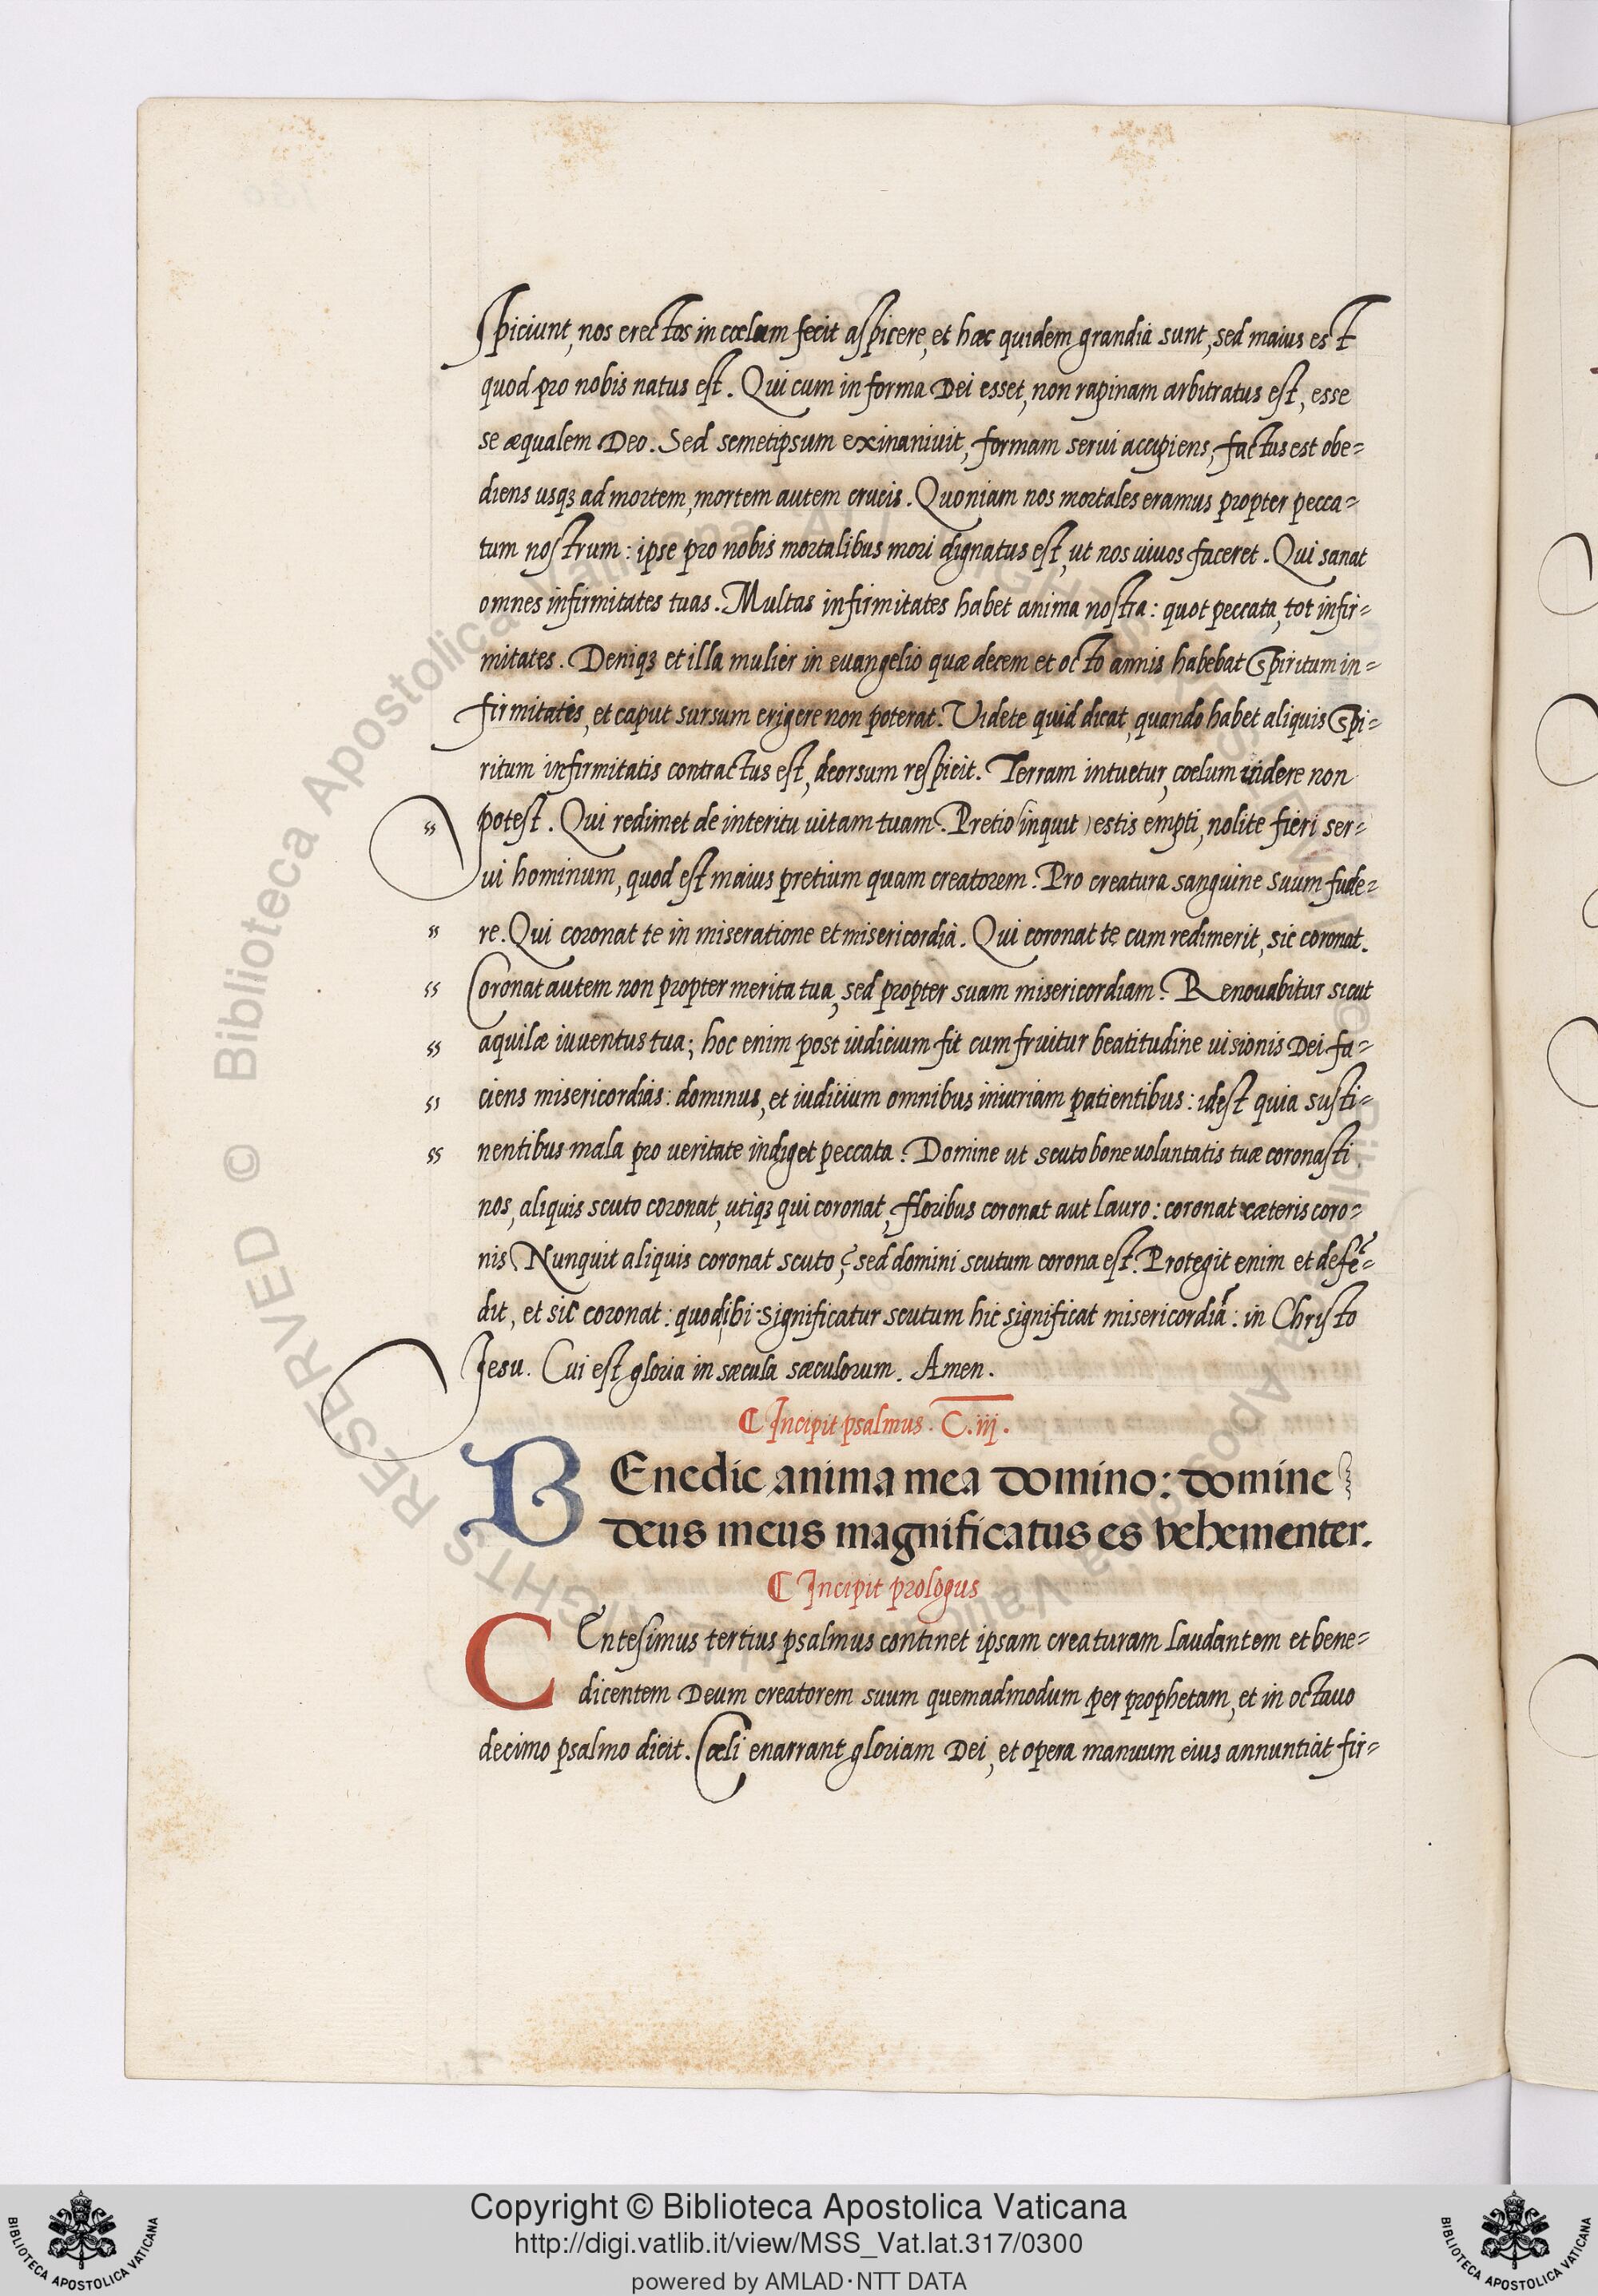 spiciunt, nos erectos in cœlum fecit aspicere, et hæc quidem grandia sunt, sed maius est
quod pro nobis natus est. Qui cum in forma Dei esset, non rapinam arbitratus est, esse
se æqualem Deo. Sed semetipsum exinaniuit, formam serui accipiens, factus est obe=
diens usqꝫ ad mortem, mortem autem crucis. Quoniam nos mortales eramus propter pecca=
tum nostrum: ipse pro nobis mortalibus mori dignatus est, ut nos uiuos faceret. Qui sanat
omnes infirmitates tuas. Multas infirmitates habet anima nostra: quot peccata, tot infir=
mitates. Deniqꝫ et illa mulier in euangelio quæ decem et octo annis habebat Spiritum in=
firmitatis, et caput sursum erigere non poterat. Uidete quid dicat, quando habet aliquis Spi=
ritum infirmitatis contractus est, deorsum respicit. Terram intuetur, coelum uidere non
potest. Qui redimet de interitu uitam tuam. Pretio (inquit) estis empti, nolite fieri ser=
ui hominum, quod est maius pretium quam creatorem. Pro creatura sanguine suum fude=
re. Qui coronat te in miseratione et misericordia. Qui coronat te cum redimerit, sic coronat.
Coronat autem non propter merita tua, sed propter suam misericordiam. Renouabitur sicut
aquilæ iuuentus tua; hoc enim post iudicium fit cum fruitur beatitudine uisionis Dei fa=
ciens misericordias: dominus, et iudicium omnibus iniuriam patientibus: idest quia susti=
nentibus mala pro ueritate indiget peccata. Domine ut scuto bone uoluntatis tuæ coronasti
nos, aliquis scuto coronat, utiqꝫ qui coronat, floribus coronat aut lauro: coronat cæteris coro=
nis Nunquit aliquis coronat scuto? sed domini scutum corona est. Protegit enim et defē=
dit, et sic coronat: quod ibi significatur scutum hic significat misericordiā: in Christo
Jesu. Cui est gloria in sæcula sæculorum. Amen.
¶ Incipit psalmus. C.iij.
BEnedic anima mea domino: domine
deus meus magnificatus es vehementer.
¶ Incipit prologus
CEntesimus tertius psalmus continet ipsam creaturam laudantem et bene=
dicentem Deum creatorem suum quemadmodum per prophetam, et in octauo
decimo psalmo dicit. Cœli enarrant gloriam Dei, et opera manuum eius annuntiat fir=
Copyright © Biblioteca Apostolica Vaticana
http://digi.vatlib.it/view/MSS_Vat.lat.317/0300
powered by AMLAD·NTT DATA
BIBLIOTECA APOSTOLICA VATICANA
BIBLIOTECA APOSTOLICA VATICANA